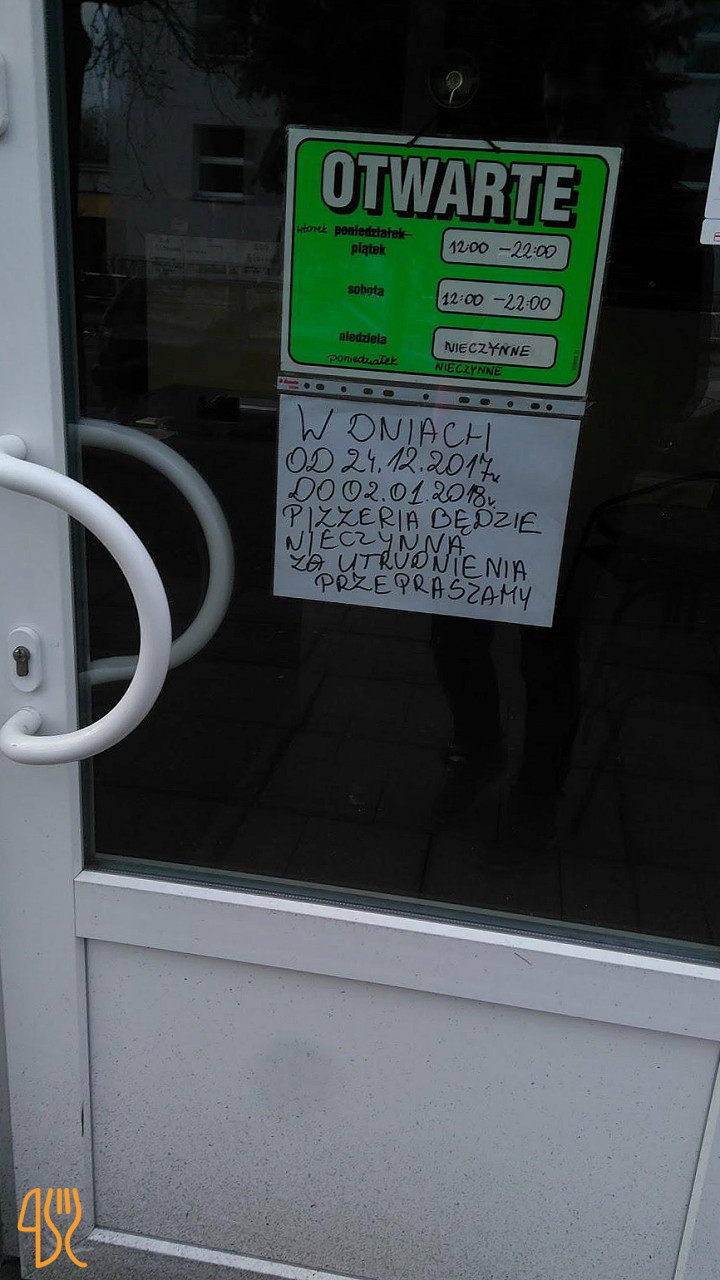 OTWARTE
wtorek poniedziałek
piątek
12:00 - 22:00
sobota
12:00 - 22:00
niedziela
NIECZYNNE
poniedziałek
NIECZYNNE
W DNIACH
OD 24.12.2017r.
DO 02.01.2018r.
PIZZERIA BĘDZIE
NIECZYNNA
ZA UTRUDNIENIA
PRZEPRASZAMY